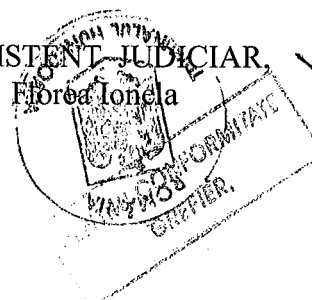 ISTENT JUDICIAR,
Florea Ionela
ROMÂNIA
CONFORMITATE
GREFIER,